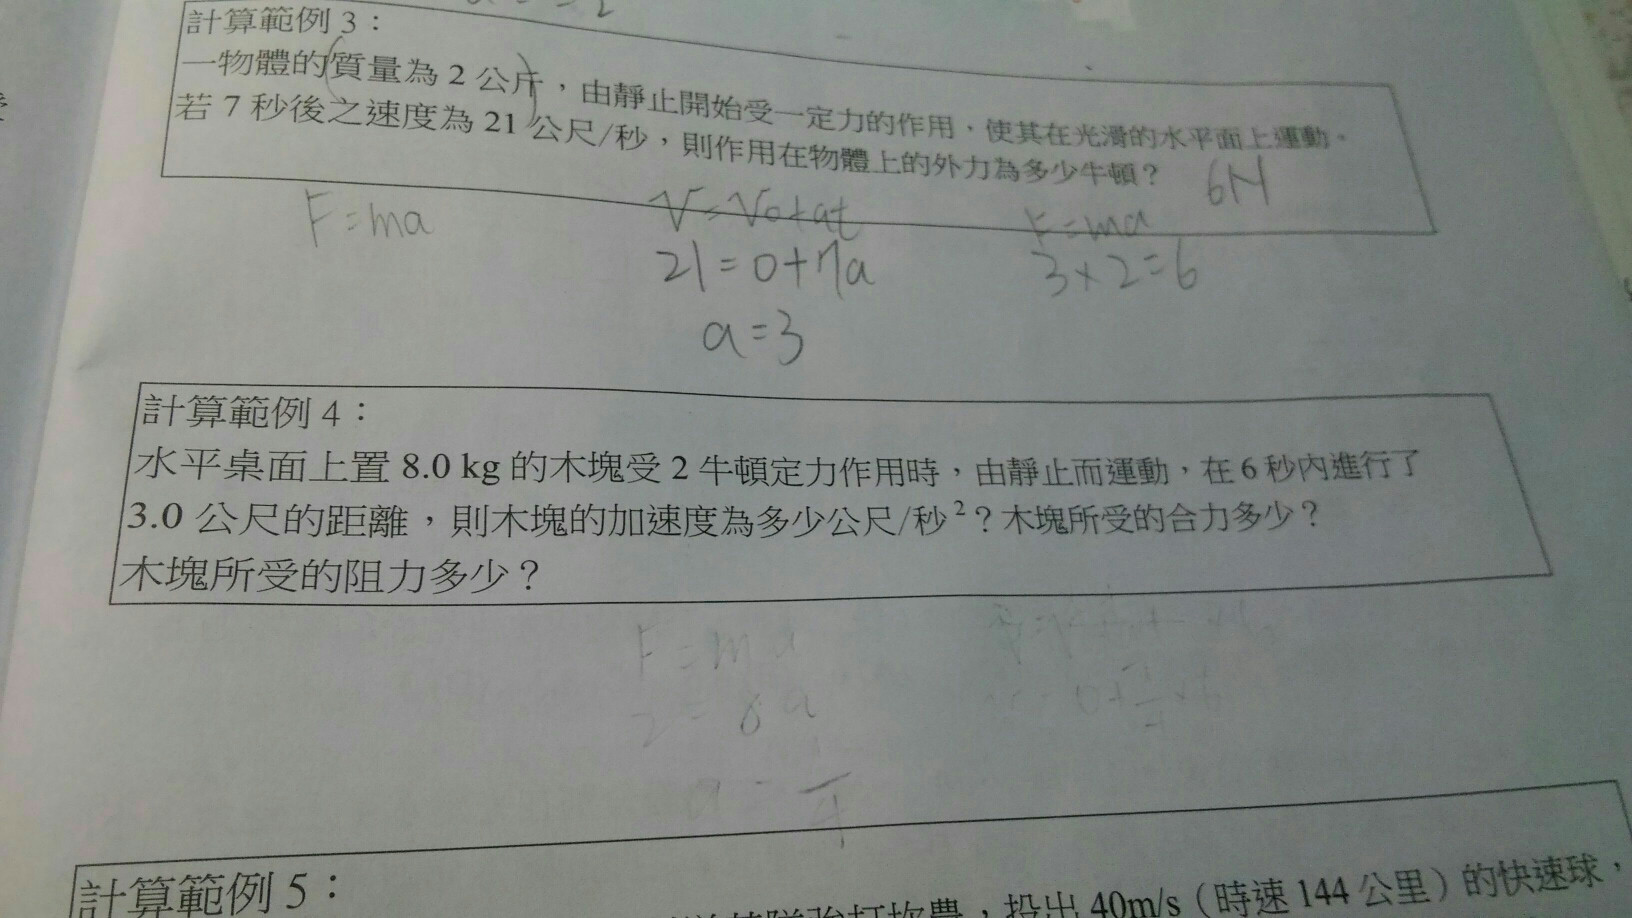 計算範例 3：
一物體的(質量為 2 公斤)，由靜止開始受一定力的作用，使其在光滑的水平面上運動。
若 7 秒後之速度為 21 公尺/秒，則作用在物體上的外力為多少牛頓？ 6N
F=ma
V=V0+at
F=ma
21=0+7a
3×2=6
a=3
計算範例 4：
水平桌面上置 8.0 kg 的木塊受 2 牛頓定力作用時，由靜止而運動，在 6 秒內進行了
3.0 公尺的距離，則木塊的加速度為多少公尺/秒²？木塊所受的合力多少？
木塊所受的阻力多少？
F=ma
2=8a
計算範例 5：
投出 40m/s（時速 144 公里）的快速球，